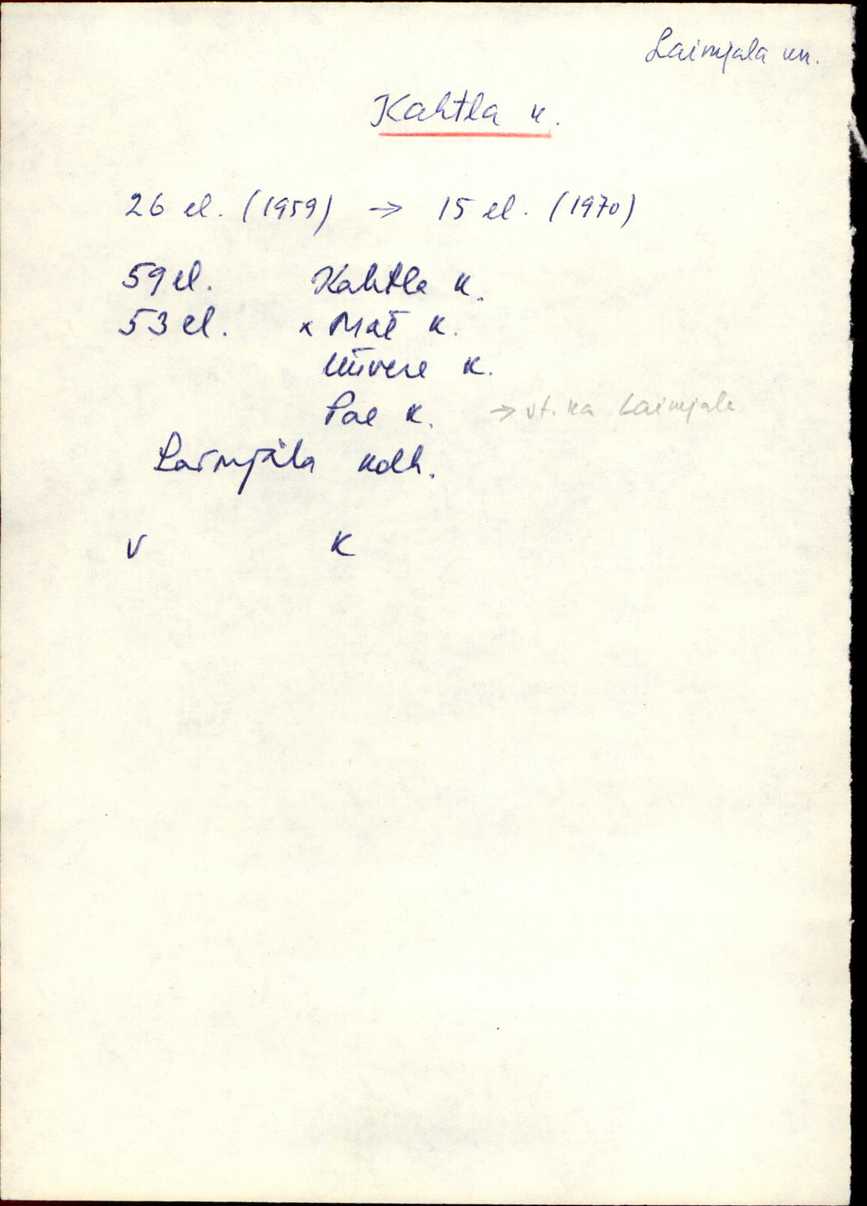 Laimjala kn.
Kahtla k.
26 el. (1959) → 15 el. (1970)
59 el. Kahtla k.
53 el. x Mai k.
Üüvere k.
Pae k. → vt. ka Laimjala
Laimjala kolh.
V K